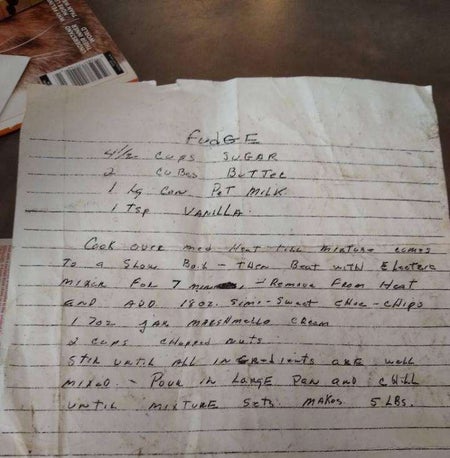 FudGE
4 1/2 CUPS SUGAR
2 CUBES BUTTER
1 Lg CAN PET MILK
1 Tsp VANILLA.
COOK OVER MED HEAT TILL MIXTURE COMES
TO A SLOW BOIL - THEN BEAT WITH ELECTRIC
MIXER FOR 7 - REMOVE FROM HEAT
AND ADD 18 OZ. SIMI-SWEET CHOC-CHIPS
1 7OZ JAR MARSHMELLO CREAM
2 CUPS CHOPPED NUTS
STIR UNTIL ALL INGREDIENTS ARE WELL
MIXED - POUR IN LARGE PAN AND CHILL
UNTIL MIXTURE SETS MAKES 5 LBS.